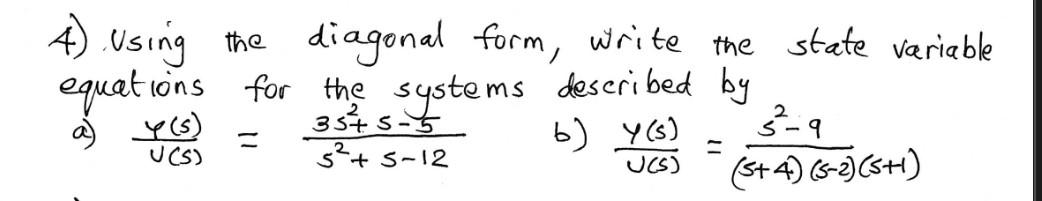 4) Using the diagonal form, write the state variable
equations for the systems described by
a) Y(s)/U(s) = (3s²+s-5)/(s²+s-12) b) Y(s)/U(s) = (s²-9)/((s+4)(s-2)(s+1))